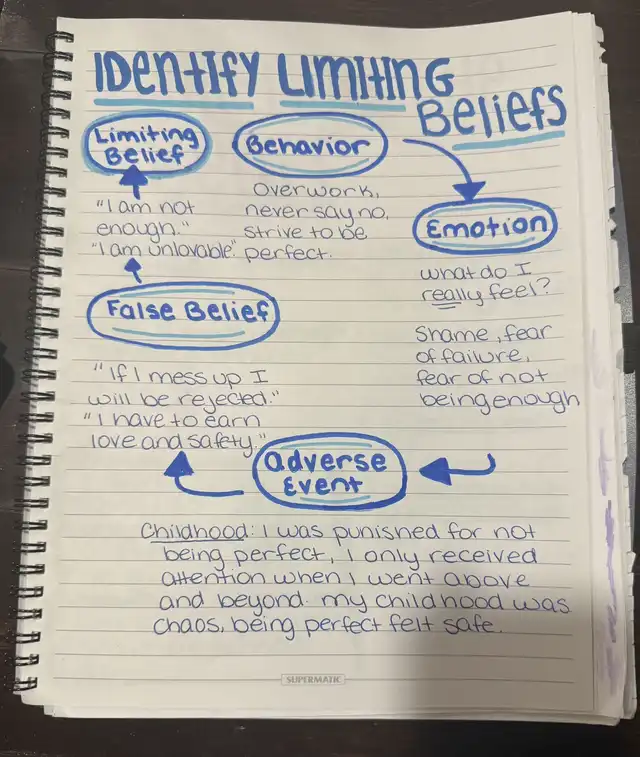 IDENTIFY LIMITING
BELIEFS
Limiting
Belief
"I am not
enough."
"I am unlovable."
Behavior
Overwork,
never say no,
strive to be
perfect.
Emotion
what do I
really feel?
Shame, fear
of failure,
fear of not
being enough
False Belief
"If I mess up I
will be rejected."
"I have to earn
love and safety."
Adverse
Event
Childhood: I was punished for not
being perfect, I only received
attention when I went above
and beyond. my childhood was
chaos, being perfect felt safe.
SUPERMATIC